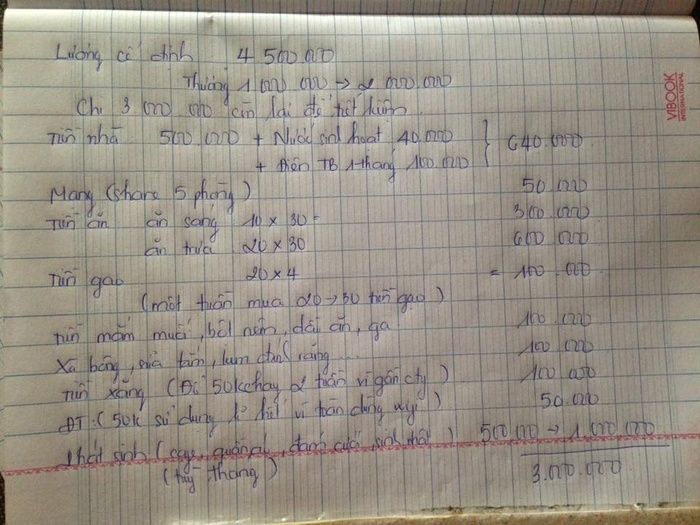 Lương cố định 4 500 000
Thưởng 1 000 000 → 2 000 000
Chi 3 000 000 còn lại để tiết kiệm
Tiền nhà 500.000 + Nước sinh hoạt 40.000 } 640.000
+ Điện TB 1 tháng 100.000
Mạng (share 5 phòng) 50.000
Tiền ăn ăn sáng 10 x 30 = 300.000
ăn trưa 20 x 30 600 000
Tiền gạo 20 x 4 = 100.000
(một tuần mua 20 → 30 tiền gạo)
Tiền mắm muối, bột nêm, dầu ăn, ga 100.000
Xà bông, sữa tắm, kem đánh răng ... 100.000
Tiền xăng (Đổ 50k chạy 2 tuần vì gần cty) 100 000
ĐT (50k sử dụng hết vì toàn dùng) 50.000
Phát sinh (quần áo, đám cưới, sinh nhật) 500.000 → 1.000.000
(tùy tháng) 3.000.000
VIBOOK
INTERNATIONAL